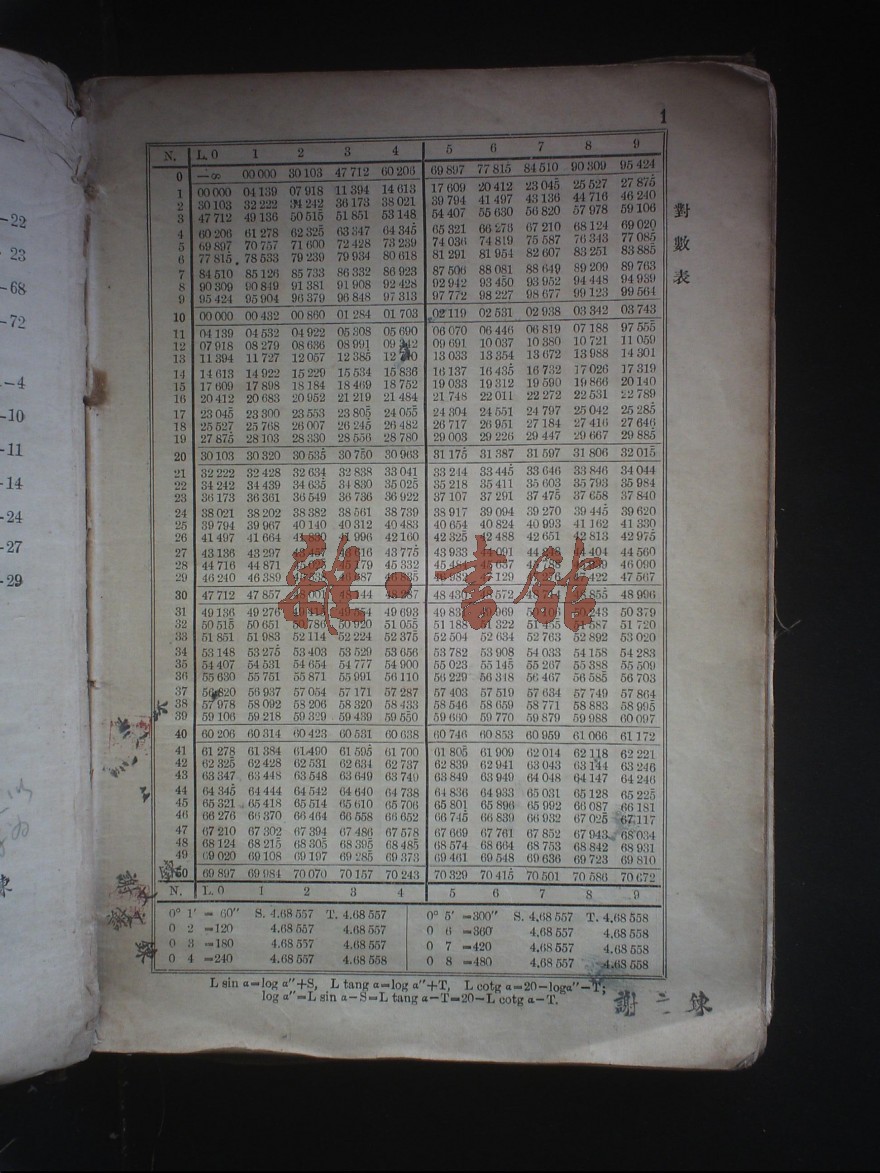 –22
23
–68
–72
–4
–10
–11
–14
–24
–27
–29
1
對數表
N. L. 0 1 2 3 4 5 6 7 8 9
0 —∞ 00 000 30 103 47 712 60 206 69 897 77 815 84 510 90 309 95 424
1 00 000 04 139 07 918 11 394 14 613 17 609 20 412 23 045 25 527 27 875
2 30 103 32 222 34 242 36 173 38 021 39 794 41 497 43 136 44 716 46 240
3 47 712 49 136 50 515 51 851 53 148 54 407 55 630 56 820 57 978 59 106
4 60 206 61 278 62 325 63 347 64 345 65 321 66 276 67 210 68 124 69 020
5 69 897 70 757 71 600 72 428 73 239 74 036 74 819 75 587 76 343 77 085
6 77 815 78 533 79 239 79 934 80 618 81 291 81 954 82 607 83 251 83 885
7 84 510 85 126 85 733 86 332 86 923 87 506 88 081 88 649 89 209 89 763
8 90 309 90 849 91 381 91 908 92 428 92 942 93 450 93 952 94 448 94 939
9 95 424 95 904 96 379 96 848 97 313 97 772 98 227 98 677 99 123 99 564
10 00 000 00 432 00 860 01 284 01 703 02 119 02 531 02 938 03 342 03 743
11 04 139 04 532 04 922 05 308 05 690 06 070 06 446 06 819 07 188 97 555
12 07 918 08 279 08 636 08 991 09 342 09 691 10 037 10 380 10 721 11 059
13 11 394 11 727 12 057 12 385 12 13 033 13 354 13 672 13 988 14 301
14 14 613 14 922 15 229 15 534 15 836 16 137 16 435 16 732 17 026 17 319
15 17 609 17 898 18 184 18 469 18 752 19 033 19 312 19 590 19 866 20 140
16 20 412 20 683 20 952 21 219 21 484 21 748 22 011 22 272 22 531 22 789
17 23 045 23 300 23 553 23 805 24 055 24 304 24 551 24 797 25 042 25 285
18 25 527 25 768 26 007 26 245 26 482 26 717 26 951 27 184 27 416 27 646
19 27 875 28 103 28 330 28 556 28 780 29 003 29 226 29 447 29 667 29 885
20 30 103 30 320 30 535 30 750 30 963 31 175 31 387 31 597 31 806 32 015
21 32 222 32 428 32 634 32 838 33 041 33 244 33 445 33 646 33 846 34 044
22 34 242 34 439 34 635 34 830 35 025 35 218 35 411 35 603 35 793 35 984
23 36 173 36 361 36 549 36 736 36 922 37 107 37 291 37 475 37 658 37 840
24 38 021 38 202 38 382 38 561 38 739 38 917 39 094 39 270 39 445 39 620
25 39 794 39 967 40 140 40 312 40 483 40 654 40 824 40 993 41 162 41 330
26 41 497 41 664 41 830 41 996 42 160 42 325 42 488 42 651 42 813 42 975
27 43 136 43 297 43 457 43 616 43 775 43 933 44 091 44 404 44 560
28 44 716 44 871 45 332 46 090
29 46 240 46 389 47 129 47 422 47 567
30 47 712 47 857 48 001 48 144 48 287 48 572 48 855 48 996
31 49 136 49 276 49 554 49 693 49 969 50 106 50 243 50 379
32 50 515 50 651 50 786 50 920 51 055 51 188 51 322 51 455 51 587 51 720
33 51 851 51 983 52 114 52 224 52 375 52 504 52 634 52 763 52 892 53 020
34 53 148 53 275 53 403 53 529 53 656 53 782 53 908 54 033 54 158 54 283
35 54 407 54 531 54 654 54 777 54 900 55 023 55 145 55 267 55 388 55 509
36 55 630 55 751 55 871 55 991 56 110 56 229 56 348 56 467 56 585 56 703
37 56 820 56 937 57 054 57 171 57 287 57 403 57 519 57 634 57 749 57 864
38 57 978 58 092 58 206 58 320 58 433 58 546 58 659 58 771 58 883 58 995
39 59 106 59 218 59 329 59 439 59 550 59 660 59 770 59 879 59 988 60 097
40 60 206 60 314 60 423 60 531 60 638 60 746 60 853 60 959 61 066 61 172
41 61 278 61 384 61 490 61 595 61 700 61 805 61 909 62 014 62 118 62 221
42 62 325 62 428 62 531 62 634 62 737 62 839 62 941 63 043 63 144 63 246
43 63 347 63 448 63 548 63 649 63 749 63 849 63 949 64 048 64 147 64 246
44 64 345 64 444 64 542 64 640 64 738 64 836 64 933 65 031 65 128 65 225
45 65 321 65 418 65 514 65 610 65 706 65 801 65 896 65 992 66 087 66 181
46 66 276 66 370 66 464 66 558 66 652 66 745 66 839 66 932 67 025 67 117
47 67 210 67 302 67 394 67 486 67 578 67 669 67 761 67 852 67 943 68 034
48 68 124 68 215 68 305 68 395 68 485 68 574 68 664 68 753 68 842 68 931
49 69 020 69 108 69 197 69 285 69 373 69 461 69 548 69 636 69 723 69 810
50 69 897 69 984 70 070 70 157 70 243 70 329 70 415 70 501 70 586 70 672
N. L. 0 1 2 3 4 5 6 7 8 9
0° 1′ = 60″ S. 4.68 557 T. 4.68 557 0° 5′ =300″ S. 4.68 557 T. 4.68 558
0 2 =120 4.68 557 4.68 557 0 6 =360 4.68 557 4.68 558
0 3 =180 4.68 557 4.68 557 0 7 =420 4.68 557 4.68 558
0 4 =240 4.68 557 4.68 558 0 8 =480 4.68 557 4.68 558
L sin α=log α″+S, L tang α=log α″+T, L cotg α=20–logα″–T;
log α″=L sin α–S=L tang α–T=20–L cotg α–T.
謝二錬